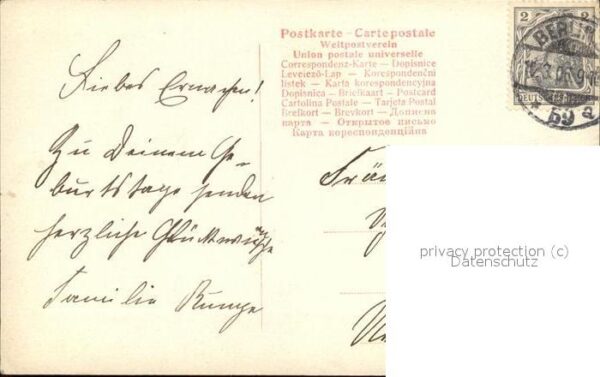 Postkarte – Cartepostale
Weltpostverein
Union postale universelle
Correspondenz-Karte — Dopisnice
Levelező-Lap — Korespondenční
lístek — Karta korespondencyjna
Dopisnica — Briefkaart — Postcard
Cartolina Postale — Tarjeta Postal
Brefkort — Brevkort — Дописна
карта — Открытое письмо
Карта кореспонденційна
2
2
BERLIN
59 a
Liebes
Zu Deinem Ge-
burtstage senden
herzliche Glückwünsche
Familie Runge
privacy protection (c)
Datenschutz